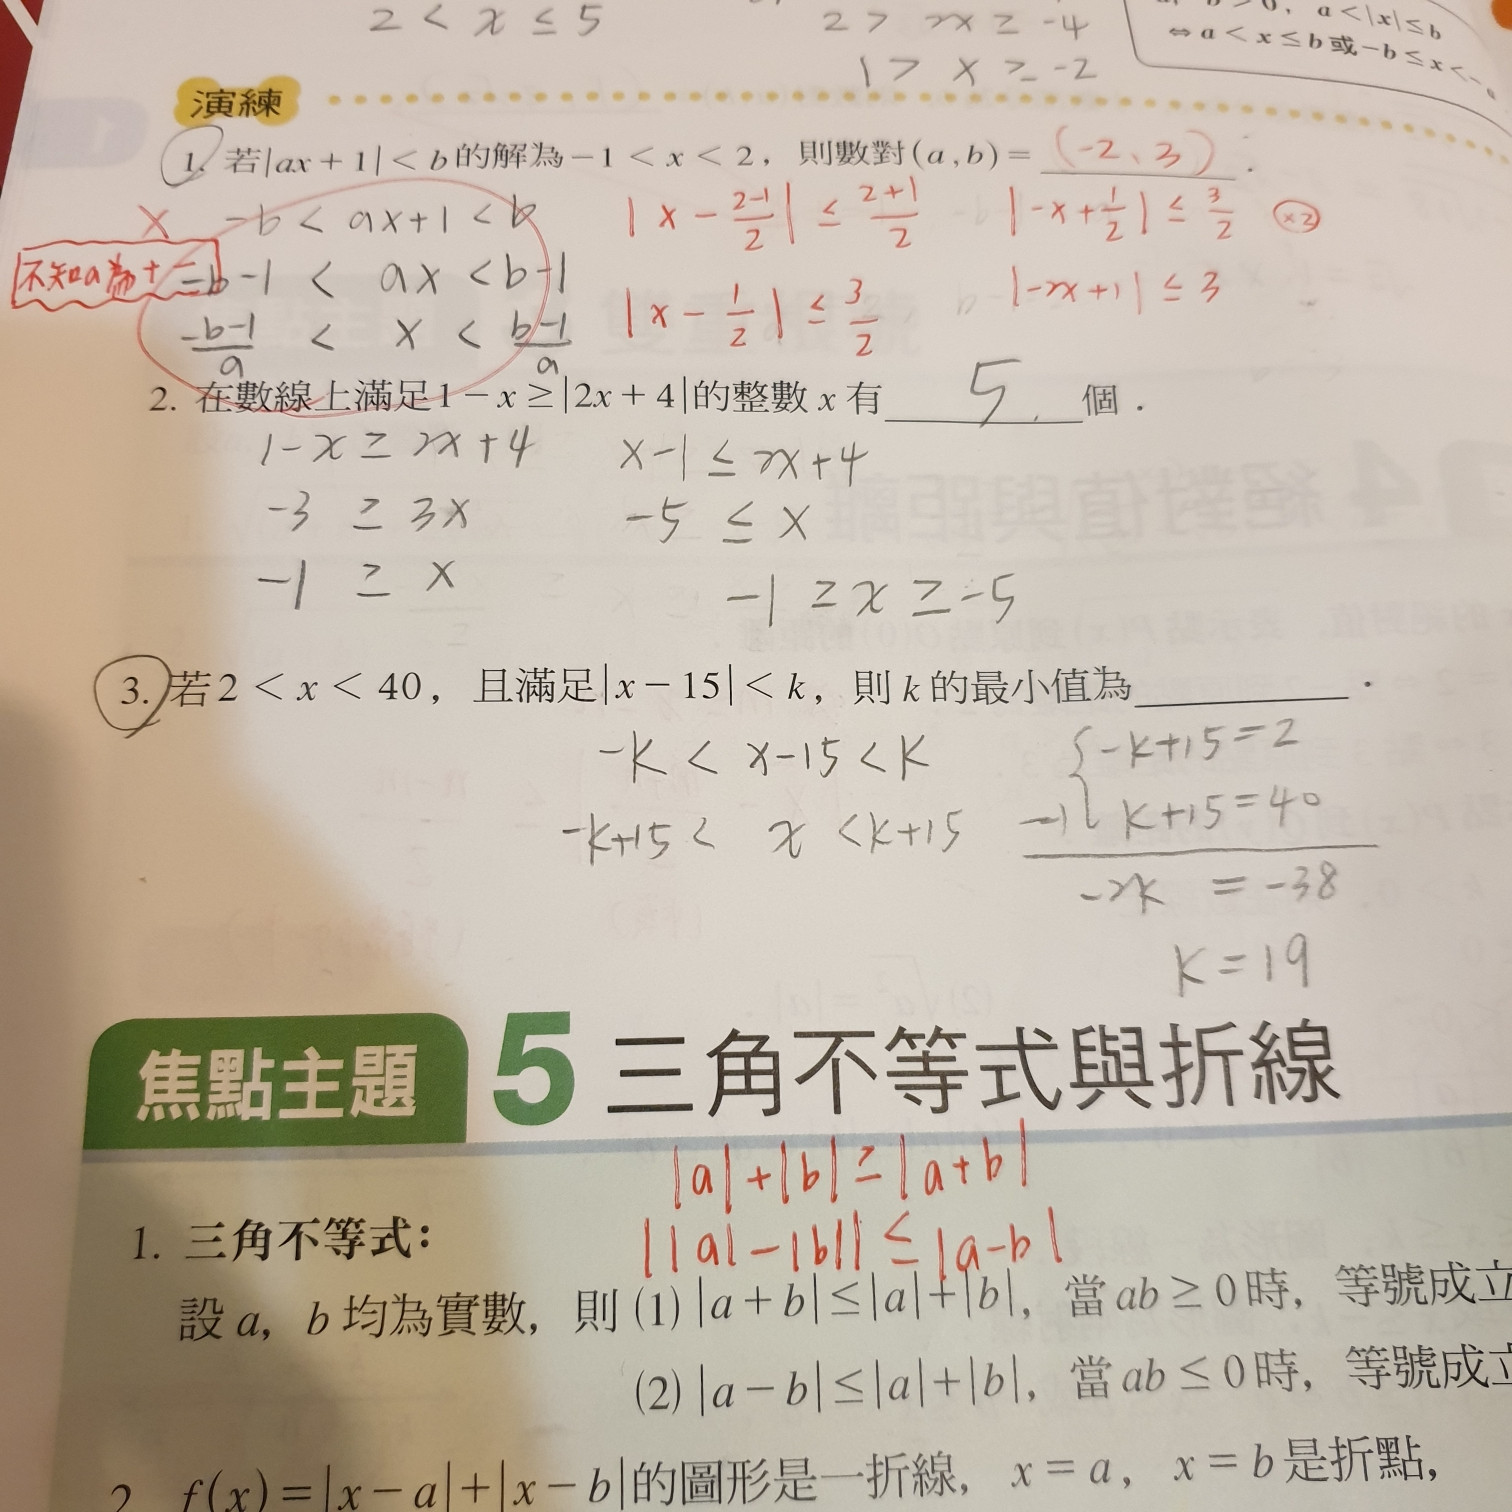 2 < x ≤ 5
2 > 2x ≥ -4
1 > x ≥ -2
a < |x| ≤ b
⇔ a < x ≤ b 或 -b ≤ x <
演練
1. 若|ax + 1| < b 的解為 -1 < x < 2，則數對(a , b) = (-2、3) .
x
不知a為+-
-b < ax+1 < b
-b-1 < ax < b-1
(-b-1)/a < x < (b-1)/a
|x - (2-1)/2| ≤ (2+1)/2
|x - 1/2| ≤ 3/2
|-x + 1/2| ≤ 3/2 ×2
|-2x+1| ≤ 3
2. 在數線上滿足1 - x ≥ |2x + 4|的整數 x 有 5. 個．
1-x ≥ 2x+4
-3 ≥ 3x
-1 ≥ x
x-1 ≤ 2x+4
-5 ≤ x
-1 ≥ x ≥ -5
3. 若2 < x < 40，且滿足|x - 15| < k，則 k 的最小值為 ．
-k < x-15 < k
-k+15 < x < k+15
{ -k+15=2
-) k+15=40
-2k = -38
k = 19
焦點主題 5 三角不等式與折線
|a|+|b| ≥ |a+b|
||a|-|b|| ≤ |a-b|
1. 三角不等式：
設 a，b 均為實數，則 (1) |a + b| ≤ |a| + |b|，當 ab ≥ 0 時，等號成立
(2) |a - b| ≤ |a| + |b|，當 ab ≤ 0 時，等號成立
2. f(x) = |x - a| + |x - b|的圖形是一折線，x = a，x = b 是折點，